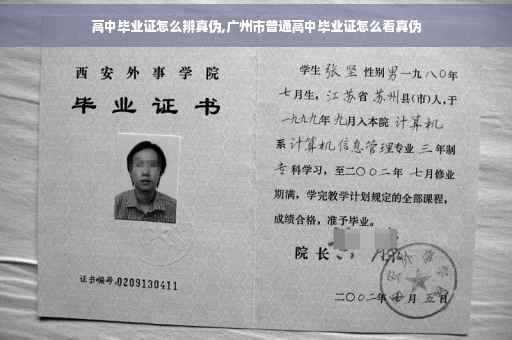 高中毕业证怎么辨真伪,广州市普通高中毕业证怎么看真伪
西安外事学院
毕业证书
证书编号:0209130411
学生 张坚 性别 男 一九八〇年
七月生，江苏省 苏州县(市)人,于
一九九九年 九月入本院 计算机
系 计算机信息管理专业 三 年制
专 科学习，至二〇〇二年 七月修业
期满，学完教学计划规定的全部课程，
成绩合格，准予毕业。
院长
二〇〇二年 月 五日